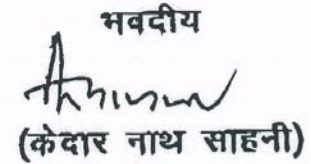 भवदीय
(केदार नाथ साहनी)